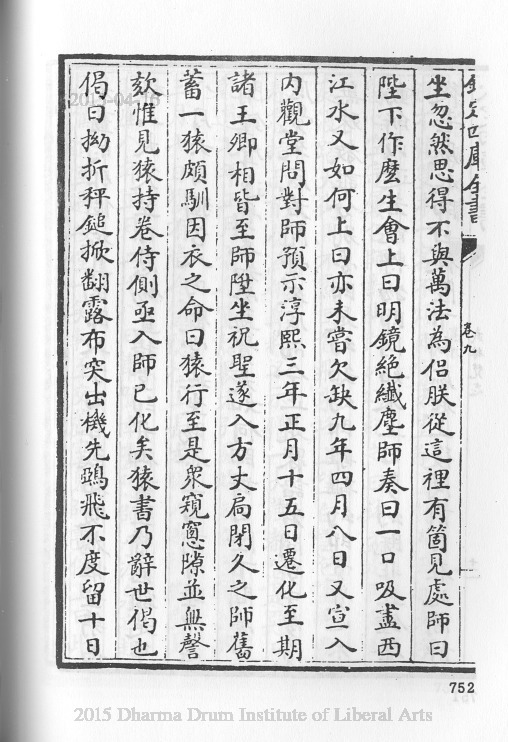 欽定四庫全書
卷九
坐忽然思得不與萬法為侶朕從這裡有箇見處師曰
陛下作麽生會上曰明鏡絶纖塵師奏曰一口吸盡西
江水又如何上曰亦未嘗欠缺九年四月八日又宣入
内觀堂問對師預示淳熙三年正月十五日遷化至期
諸王卿相皆至師陞坐祝聖遂入方丈扄閉久之師舊
蓄一猿頗馴因衣之命曰猿行至是衆窺窻隙並無謦
欬惟見猿持卷侍側亟入師已化矣猿書乃辭世偈也
偈曰拗折秤鎚掀翻露布突出機先鵶飛不度留十日
752
2015 Dharma Drum Institute of Liberal Arts